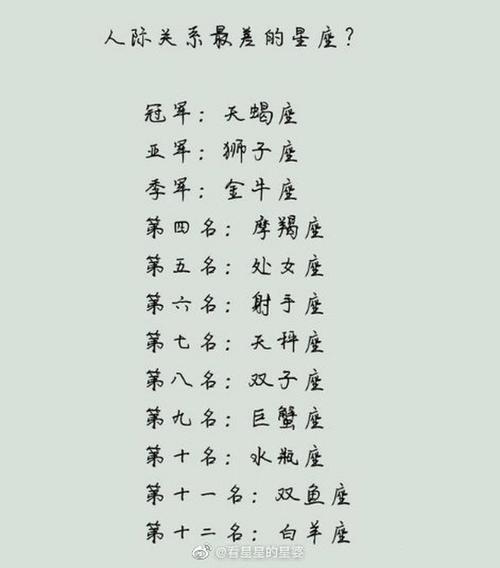 人际关系最差的星座?
冠军:天蝎座
亚军:狮子座
季军:金牛座
第四名:摩羯座
第五名:处女座
第六名:射手座
第七名:天秤座
第八名:双子座
第九名:巨蟹座
第十名:水瓶座
第十一名:双鱼座
第十二名:白羊座
@看星星的星婆